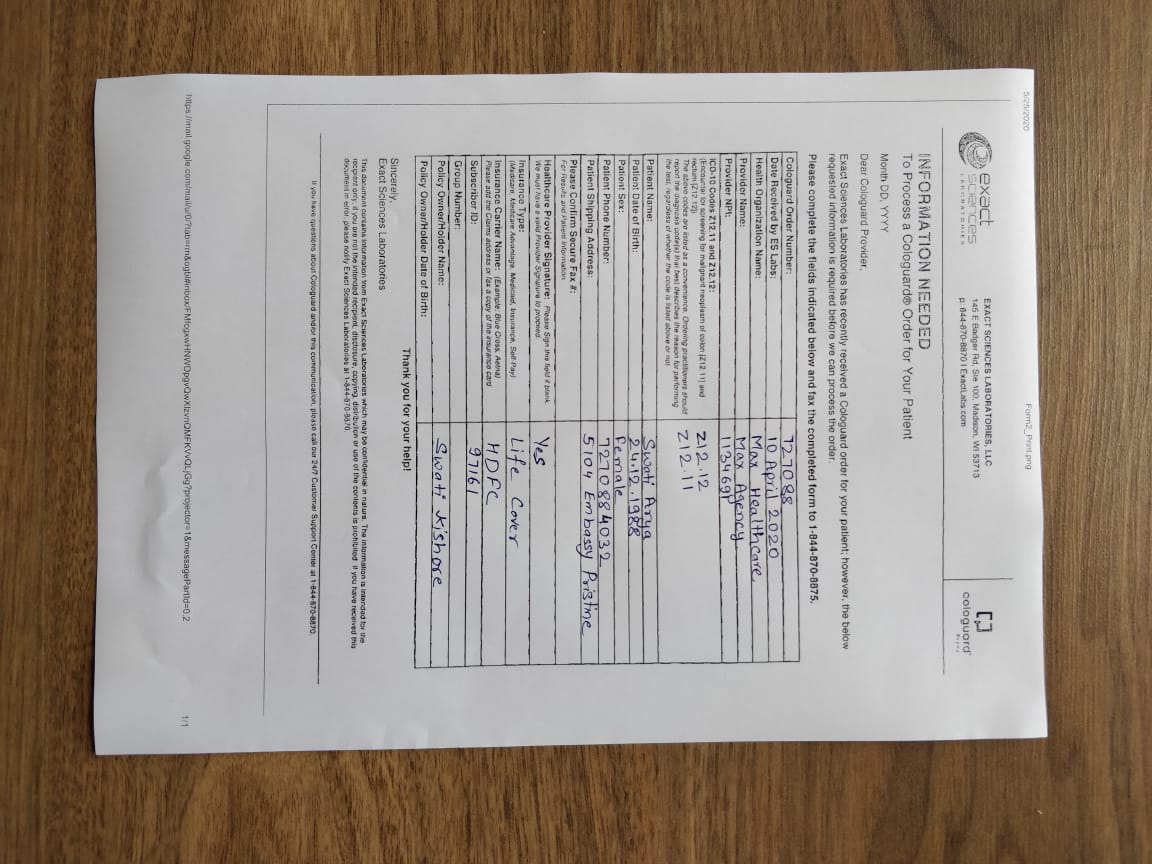 5/25/2020 Form2_Print.png
exact sciences LABORATORIES
EXACT SCIENCES LABORATORIES, LLC
145 E Badger Rd, Ste 100, Madison, WI 53713
p: 844-870-8870 | ExactLabs.com
cologuard
INFORMATION NEEDED
To Process a Cologuard® Order for Your Patient
Month DD, YYYY
Dear Cologuard Provider,
Exact Sciences Laboratories has recently received a Cologuard order for your patient; however, the below
requested information is required before we can process the order.
Please complete the fields indicated below and fax the completed form to 1-844-870-8875.
Cologuard Order Number: 727088
Date Received by ES Labs: 10 April 2020
Health Organization Name: Max Healthcare
Provider Name: Max Agency
Provider NPI:
ICD-10 Codes Z12.11 and Z12.12: Z12.12
(Encounter for screening for malignant neoplasm of colon [Z12.11] and Z12.11
rectum [Z12.12])
The above codes are listed as a convenience. Ordering practitioners should
report the diagnosis code(s) that best describes the reason for performing
the test, regardless of whether the code is listed above or not.
Patient Name: Swati Arya
Patient Date of Birth: 24.12.1988
Patient Sex: Female
Patient Phone Number: 7270884032
Patient Shipping Address: 5104 Embassy Pristine
Please Confirm Secure Fax #:
For Results and Patient Information
Healthcare Provider Signature: Please Sign this field if blank. Yes
We must have a valid Provider Signature to proceed
Insurance Type: Life Cover
(Medicare, Medicare Advantage, Medicaid, Insurance, Self-Pay)
Insurance Carrier Name: (Example: Blue Cross, Aetna) HDFC
Please add the Claims address or fax a copy of the insurance card
Subscriber ID: 97161
Group Number:
Policy Owner/Holder Name: Swati Kishore
Policy Owner/Holder Date of Birth:
Thank you for your help!
Sincerely,
Exact Sciences Laboratories
This document contains information from Exact Sciences Laboratories which may be confidential in nature. The information is intended for the
recipient only; if you are not the intended recipient, disclosure, copying, distribution or use of the contents is prohibited. If you have received this
document in error, please notify Exact Sciences Laboratories at 1-844-870-8870.
If you have questions about Cologuard and/or this communication, please call our 24/7 Customer Support Center at 1-844-870-8870.
1/1